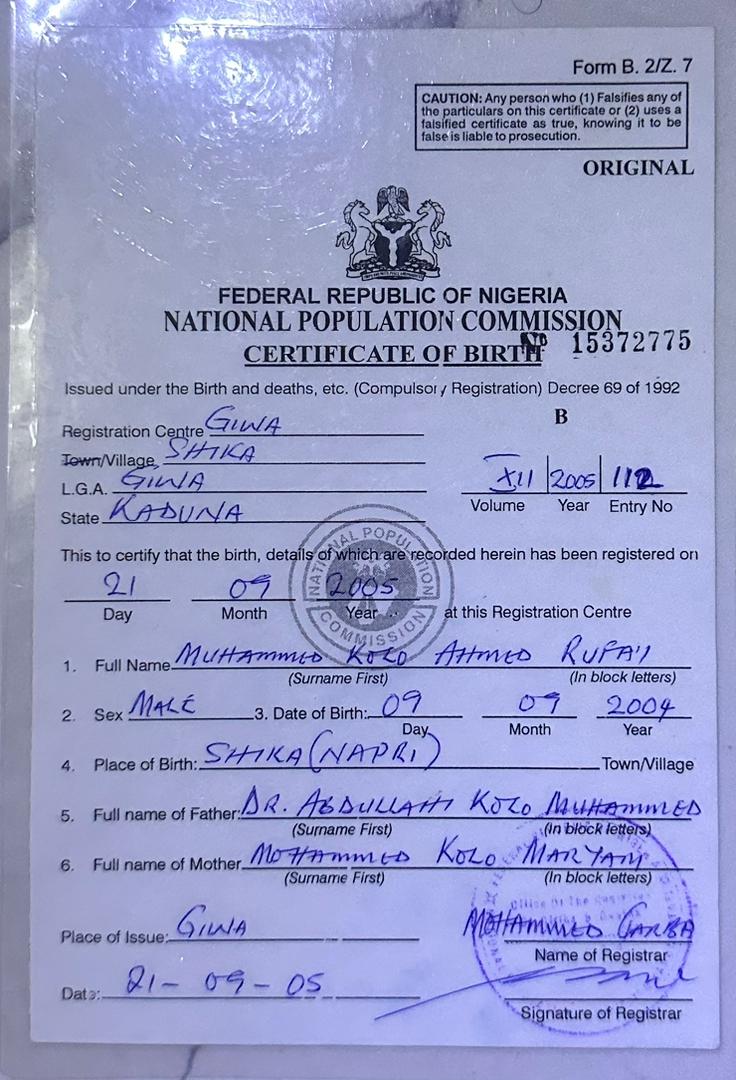 Form B. 2/Z. 7
CAUTION: Any person who (1) Falsifies any of
the particulars on this certificate or (2) uses a
falsified certificate as true, knowing it to be
false is liable to prosecution.
ORIGINAL
FEDERAL REPUBLIC OF NIGERIA
NATIONAL POPULATION COMMISSION
CERTIFICATE OF BIRTH
No 15372775
Issued under the Birth and deaths, etc. (Compulsory Registration) Decree 69 of 1992
B
Registration Centre GIWA
Town/Village SHIKA
L.G.A. GIWA
State KADUNA
XII 2005 112
Volume Year Entry No
NATIONAL POPULATION COMMISSION
This to certify that the birth, details of which are recorded herein has been registered on
21 09 2005
Day Month Year at this Registration Centre
1. Full Name MUHAMMED KOLO AHMED RUFA'I
(Surname First) (In block letters)
2. Sex MALE 3. Date of Birth: 09 09 2004
Day Month Year
4. Place of Birth: SHIKA (NAPRI) Town/Village
5. Full name of Father: DR. ABDULLAHI KOLO MUHAMMED
(Surname First) (In block letters)
6. Full name of Mother MOHAMMED KOLO MARYAM
(Surname First) (In block letters)
Place of Issue: GIWA
MOHAMMED GARBA
Name of Registrar
Date: 21-09-05
Signature of Registrar